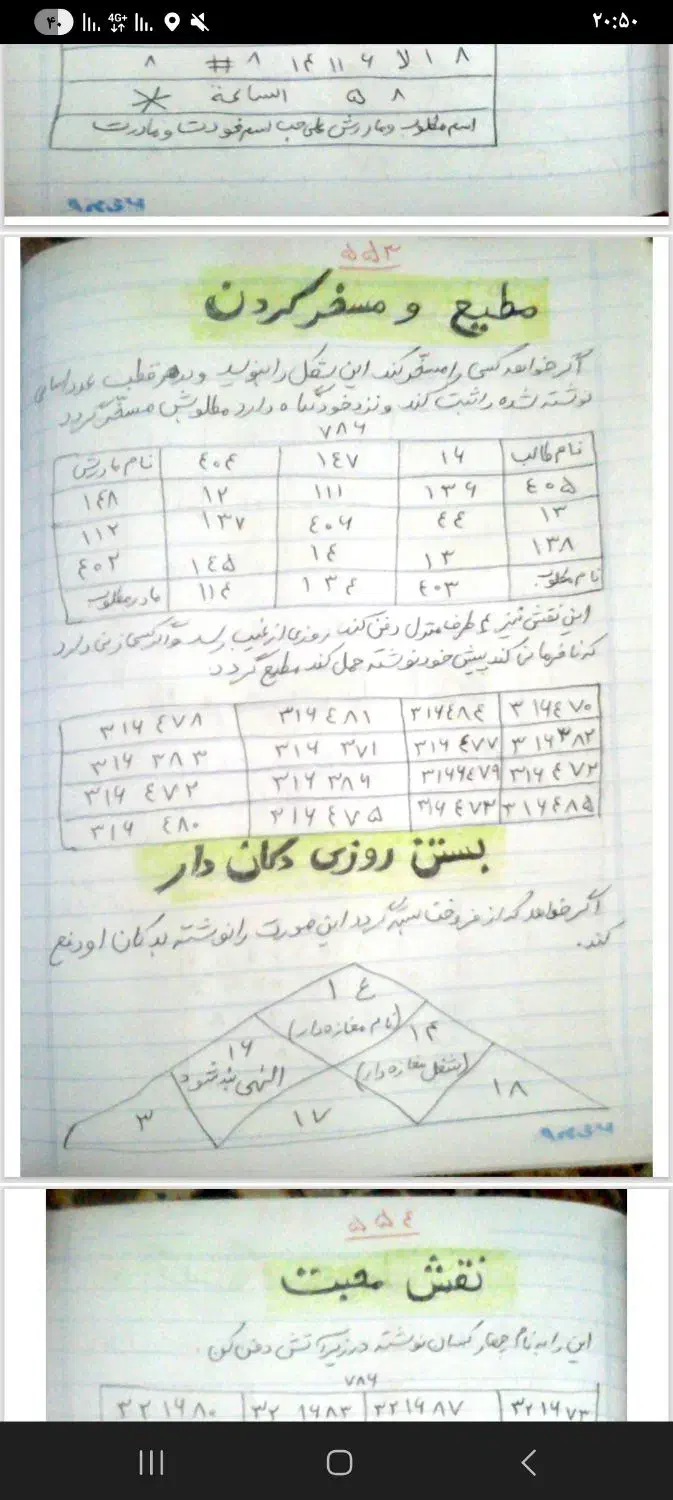 ۴۰
4G+
۲۰:۵۰
۸ ۱ لا ۶ ۱۱ ۱۴ ۸ # ۸
۸ ۵ الساعة
اسم مطلوب و مادرش علی حب اسم خودت و مادرت
۵۵۳
مطیع و مسخر کردن
اگر خواهد کسی را مسخر کند این شکل را بنویسد و بدهر قطب عدد اسامی
نوشته شده را ثبت کند و نزد خود نگاه دارد مطلوبش مسخر گردد
۷۸۶
نام طالب ۱۶ ۱٤۷ ٤۰۴ نام مادرش
٤۰۵ ۱۳۶ ۱۱۱ ۱۲ ۱٤۸
۱۳ ٤٤ ٤۰۶ ۱۳۷ ۱۱۲
۱۳۸ ۱۳ ۱٤ ۱٤۵ ٤۰۲
نام مطلوب ٤۰۳ ۱۳۴ ۱۱۴ مادر مطلوب
این نقش نیز ۴ طرف منزل دفن کند روزی از غیب برسد و اگر کسی زنی دارد
که نافرمانی کند پیش خود نوشته حمل کند مطیع گردد
۳۱۶٤۷۰ ۳۱۶٤۸٤ ۳۱۶٤۸۱ ۳۱۶٤۷۸
۳۱۶۳۸۲ ۳۱۶٤۷۷ ۳۱۶۳۷۱ ۳۱۶۳۸۳
۳۱۶٤۷۲ ۳۱۶۶٤۷۹ ۳۱۶۳۸۶ ۳۱۶٤۷۲
۳۱۶٤۸۵ ۳۱۶٤۷۳ ۳۱۶٤۷۵ ۳۱۶٤۸۰
بستن روزی دکان دار
اگر خواهد که از فروخت بسته گردد این صورت را نوشته بدکان او دفع
کند.
۱٤
(نام مغازه دار) ۱۴
۱۶
الهی بند شود (شغل مغازه دار)
۳ ۱۷ ۱۸
۵۵٤
نقش محبت
این را به نام چهار کسان نوشته در زیر آتش دفن کن.
۷۸۶
۳۲۱۶۷۳ ۳۲۱۶۸۷ ۳۲۱۶۸۳ ۳۲۱۶۸۰